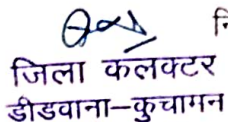 नि
जिला कलक्टर
डीडवाना–कुचामन